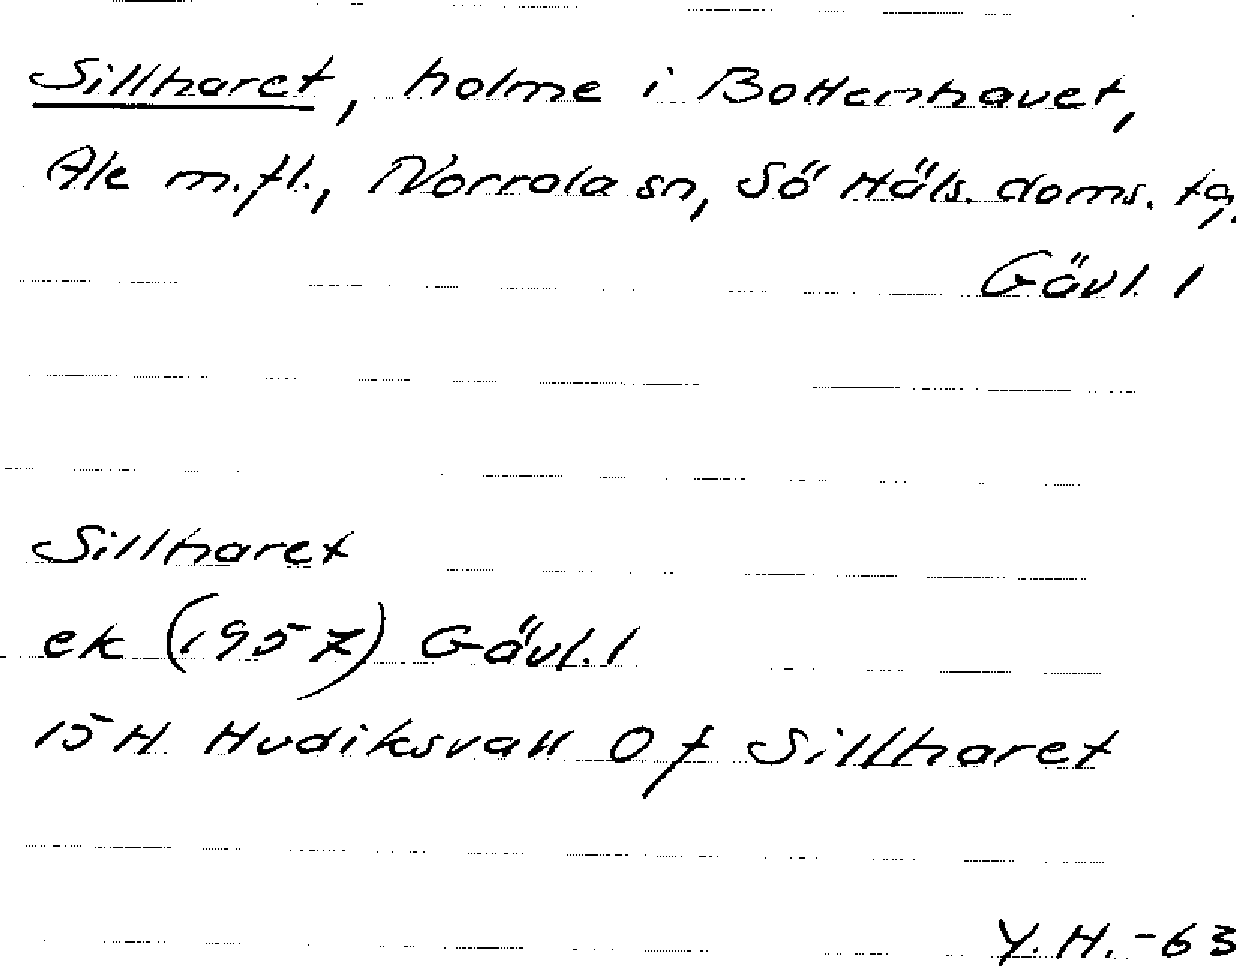 Sillharet, holme i Bottenhavet,
Ale m.fl., Norrala sn, Sö Häls. doms. tg.
Gävl. 1
Sillharet
ek (1957) Gävl. 1
15H Hudiksvall 0 f Sillharet
Y.H.-63